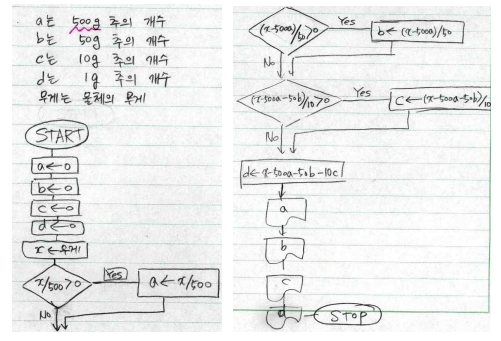 a는 500g 추의 개수
b는 50g 추의 개수
c는 10g 추의 개수
d는 1g 추의 개수
무게는 물체의 무게
START
a←0
b←0
c←0
d←0
x←무게
x/500>0
Yes
a←x/500
No
(x-500a)/50>0
Yes
b←(x-500a)/50
No
(x-500a-50b)/10>0
Yes
C←(x-500a-50b)/10
No
d←x-500a-50b-10c
a
b
c
d
STOP